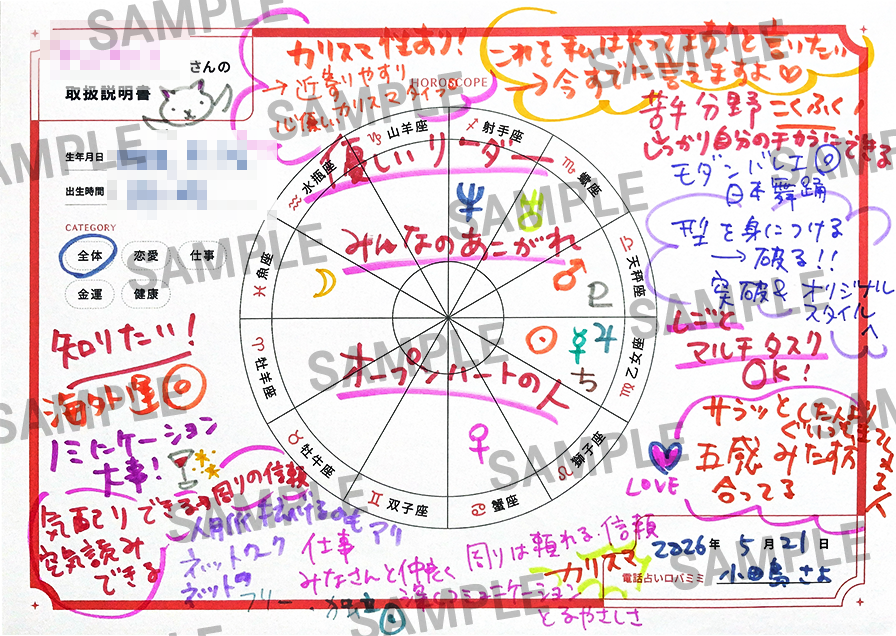 SAMPLE
さんの
取扱説明書
生年月日
出生時間
CATEGORY
全体
恋愛
仕事
金運
健康
HOROSCOPE
山羊座
射手座
水瓶座
蠍座
魚座
天秤座
牡羊座
乙女座
牡牛座
獅子座
双子座
蟹座
カリスマ性あり!
→近寄りやすり
心優しいカリスマタイプー
優しいリーダー
みんなのあこがれ
オープンハートの人
これを私はやってますと言いたい
→今すでに言えますよ♡
苦手分野 こくふく!
しっかり自分のチカラにできる
モダンバレエ◎
日本舞踊
型を身につける
→破る!!
突破& オリジナル
スタイルへ
しごと
マルチタスク
OK!
サラッとした人より
五感 みた す方
合ってる
LOVE
知りたい!
海外運◎
コミュニケーション
大事!
気配りできる→周りの信頼
空気読み
できる
ネットワーク
ネットの
フリー
仕事
みなさんと仲良く
周りは頼れる・信頼
カリスマ
コミュニケーション
とるやさしさ
2026年5月21日
電話占いロバミミ
小田島さよ